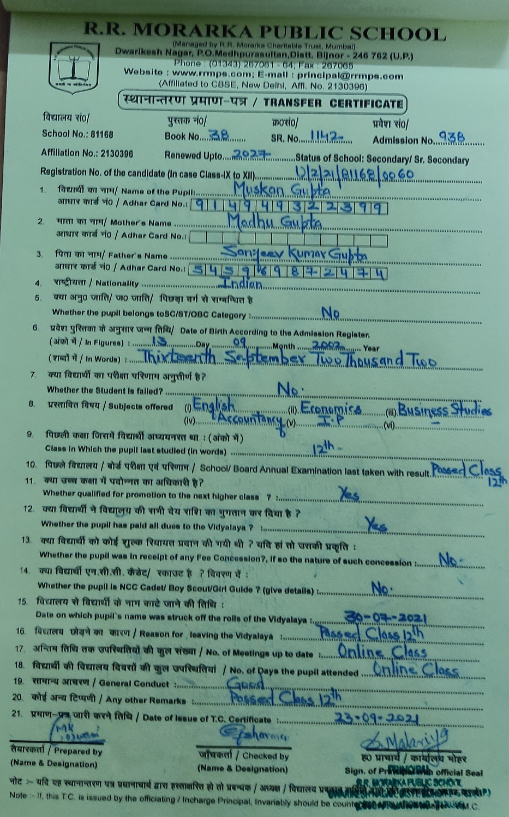 R.R. MORARKA PUBLIC SCHOOL
(Managed by R.R. Morarka Charitable Trust, Mumbai)
Dwarikesh Nagar, P.O.Medhpurasultan,Distt. Bijnor - 246 762 (U.P.)
Phone : (01343) 267061 - 64, Fax : 267065
Website : www.rrmps.com; E-mail : principal@rrmps.com
(Affiliated to CBSE, New Delhi, Affi. No. 2130396)
स्थानान्तरण प्रमाण-पत्र / TRANSFER CERTIFICATE
विद्यालय सं०/ पुस्तक नं०/ क्र०सं०/ प्रवेश सं०/
School No.: 81168 Book No. 38 SR. No. 1142 Admission No. 938
Affiliation No.: 2130396 Renewed Upto. 2027 Status of School: Secondary/ Sr. Secondary
Registration No. of the candidate (In case Class-IX to XII) /2/21/81168/0060
1. विद्यार्थी का नाम/ Name of the Pupil: Muskan Gupta
आधार कार्ड नं० / Adhar Card No.: 914949322399
2. माता का नाम/ Mother's Name Madhu Gupta
आधार कार्ड नं० / Adhar Card No.:
3. पिता का नाम/ Father's Name Sanjeev Kumar Gupta
आधार कार्ड नं० / Adhar Card No.: 545969872474
4. राष्ट्रीयता / Nationality Indian
5. क्या अनु० जाति/ ज० जाति/ पिछड़ा वर्ग से सम्बन्धित है
Whether the pupil belongs toSC/ST/OBC Category : No
6. प्रवेश पुस्तिका के अनुसार जन्म तिथि/ Date of Birth According to the Admission Register.
(अंको में / In Figures) : 13 Day 09 Month 2002 Year
(शब्दों में / In Words) : Thirteenth September Two Thousand Two
7. क्या विद्यार्थी का परीक्षा परिणाम अनुत्तीर्ण है?
Whether the Student is failed? No.
8. प्रस्तावित विषय / Subjects offered (i) English (ii) Economics (iii) Business Studies
(iv) Accountancy (v) I.P (vi) –
9. पिछली कक्षा जिसमे विद्यार्थी अध्ययनरत था : (अंको में)
Class in Which the pupil last studied (in words) 12th
10. पिछले विद्यालय / बोर्ड परीक्षा एवं परिणाम / School/ Board Annual Examination last taken with result. Passed Class 12th
11. क्या उच्च कक्षा में पदोन्नत का अधिकारी है?
Whether qualified for promotion to the next higher class ? : Yes
12. क्या विद्यार्थी ने विद्यालय की सभी देय राशि का भुगतान कर दिया है ?
Whether the pupil has paid all dues to the Vidyalaya ? : Yes
13. क्या विद्यार्थी को कोई शुल्क रियायत प्रदान की गयी थी ? यदि हां तो उसकी प्रकृति :
Whether the pupil was in receipt of any Fee Concession?, if so the nature of such concession : No.
14. क्या विद्यार्थी एन.सी.सी. कैडेट/ स्काउट है ? विवरण दें :
Whether the pupil is NCC Cadet/ Boy Scout/Girl Guide ? (give details) : No.
15. विद्यालय से विद्यार्थी के नाम काटे जाने की तिथि :
Date on which pupil's name was struck off the rolls of the Vidyalaya : 30-07-2021
16. विद्यालय छोड़ने का कारण / Reason for leaving the Vidyalaya : Passed Class 12th
17. अन्तिम तिथि तक उपस्थितियों की कुल संख्या / No. of Meetings up to date : Online Class
18. विद्यार्थी की विद्यालय दिवसों की कुल उपस्थितियां / No. of Days the pupil attended Online Class
19. सामान्य आचरण / General Conduct : Good
20. कोई अन्य टिप्पणी / Any other Remarks : Passed Class 12th
21. प्रमाण-पत्र जारी करने तिथि / Date of Issue of T.C. Certificate : 23-09-2021
तैयारकर्ता / Prepared by जाँचकर्ता / Checked by ह० प्राचार्य / कार्यालय मोहर
(Name & Designation) (Name & Designation) Sign. of Principal with official Seal
PRINCIPAL
R.R. MORARKA PUBLIC SCHOOL
नोट :- यदि यह स्थानान्तरण पत्र प्रधानाचार्य द्वारा हस्ताक्षरित हो तो प्रबन्धक / अध्यक्ष / विद्यालय
Note :- If, this T.C. is issued by the officiating / Incharge Principal, Invariably should be M.C.